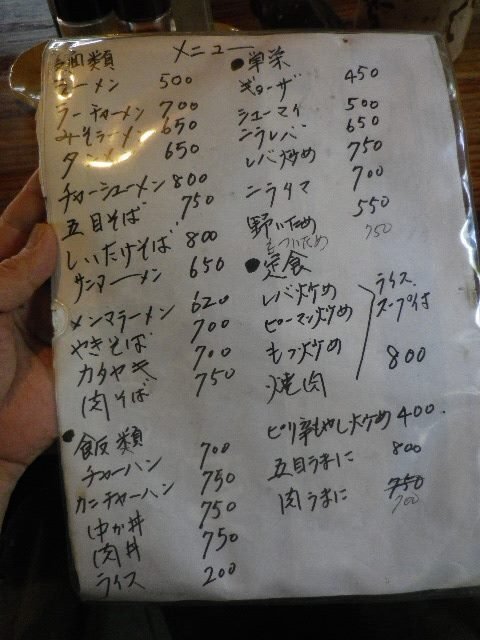 メニュー
麺類
ラーメン 500
ラーチャーメン 700
みそラーメン 650
タンメン 650
チャーシューメン 800
五目そば 750
しいたけそば 800
サンマーメン 650
メンマラーメン 620
やきそば 700
カタヤキ 700
肉そば 750
●飯類
チャーハン 700
カニチャーハン 750
中か丼 750
肉丼 750
ライス 200
●単菜
ギョーザ 450
シューマイ 500
ニラレバ 650
レバ炒め 750
ニラタマ 700
野いため 550
もついため 750
●定食
レバ炒め
ピーマン炒め
もつ炒め
焼肉
ライス、
スープ付
800
ピリ辛もやし炒め 400.
五目うまに 800
肉うまに 750
700